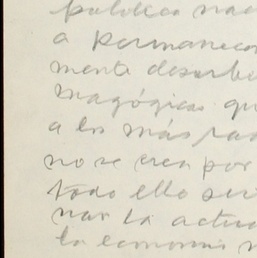 política nac
a permanecer
mente desarbo
magógicas qu
a los más ra
no se crea por
todo ello ser
nar la actua
la economía n